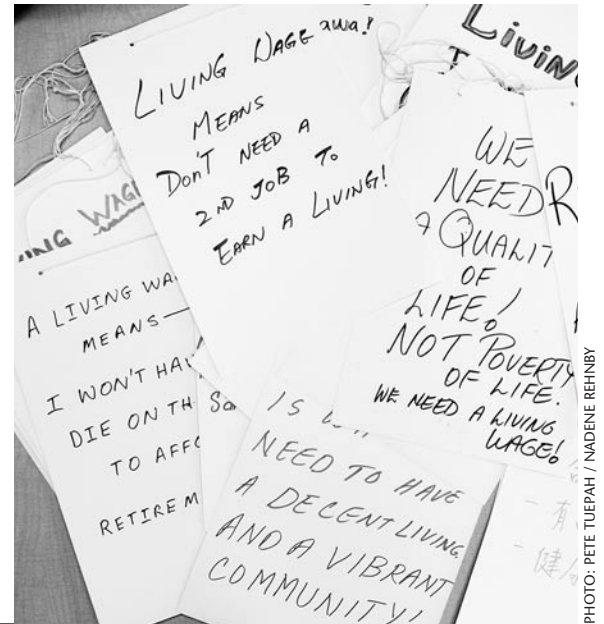 LIVING WAGE
MEANS
DON'T NEED A
2ND JOB TO
EARN A LIVING!
LIVIN
WE
NEED
A QUALIT
OF
LIFE!
NOT POVERTY
OF LIFE.
WE NEED A LIVING
WAGE!
R
ING WAG
A LIVING WA
MEANS—
I WON'T HAV
DIE ON TH
TO AFFO
RETIREM
So
IS
NEED TO HAVE
A DECENT LIVING
AND A VIBRANT
COMMUNITY!
- 有
- 健
PHOTO: PETE TUEPAH / NADENE REHNBY